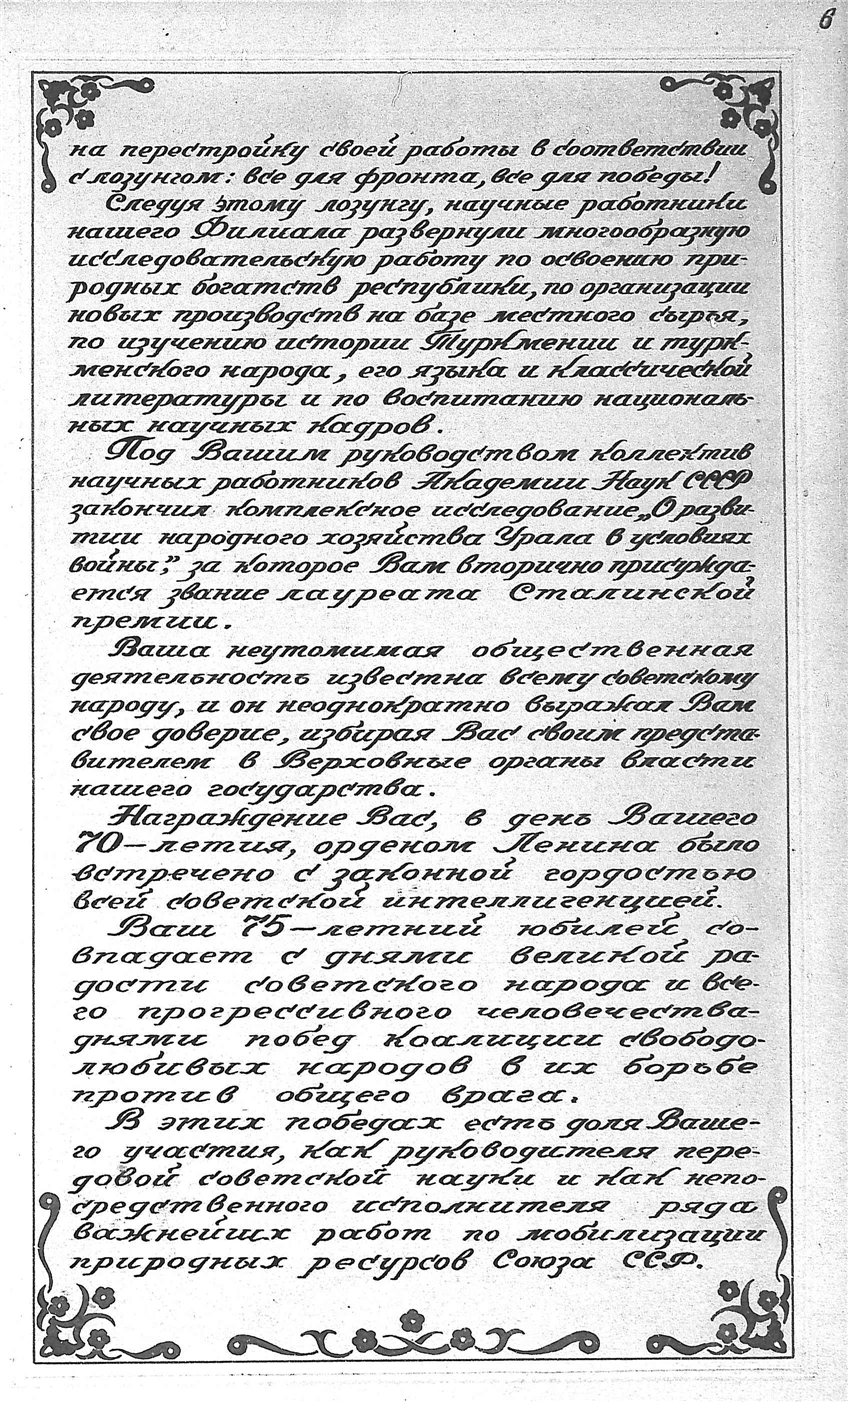 6
на перестройку своей работы в соответствии
с лозунгом: все для фронта, все для победы!
Следуя этому лозунгу, научные работники
нашего Филиала развернули многообразную
исследовательскую работу по освоению при-
родных богатств республики, по организации
новых производств на базе местного сырья,
по изучению истории Туркмении и турк-
менского народа, его языка и классической
литературы и по воспитанию националь-
ных научных кадров.
Под Вашим руководством коллектив
научных работников Академии Наук СССР
закончил комплексное исследование „О разви-
тии народного хозяйства Урала в условиях
войны”, за которое Вам вторично присужда-
ется звание лауреата Сталинской
премии.
Ваша неутомимая общественная
деятельность известна всему советскому
народу, и он неоднократно выражал Вам
свое доверие, избирая Вас своим предста-
вителем в Верховные органы власти
нашего государства.
Награждение Вас, в день Вашего
70-летия, орденом Ленина было
встречено с законной гордостью
всей советской интеллигенцией.
Ваш 75-летний юбилей со-
впадает с днями великой ра-
дости советского народа и все-
го прогрессивного человечества-
днями побед коалиции свободо-
любивых народов в их борьбе
против общего врага.
В этих победах есть доля Ваше-
го участия, как руководителя пере-
довой советской науки и как непо-
средственного исполнителя ряда
важнейших работ по мобилизации
природных ресурсов Союза ССР.